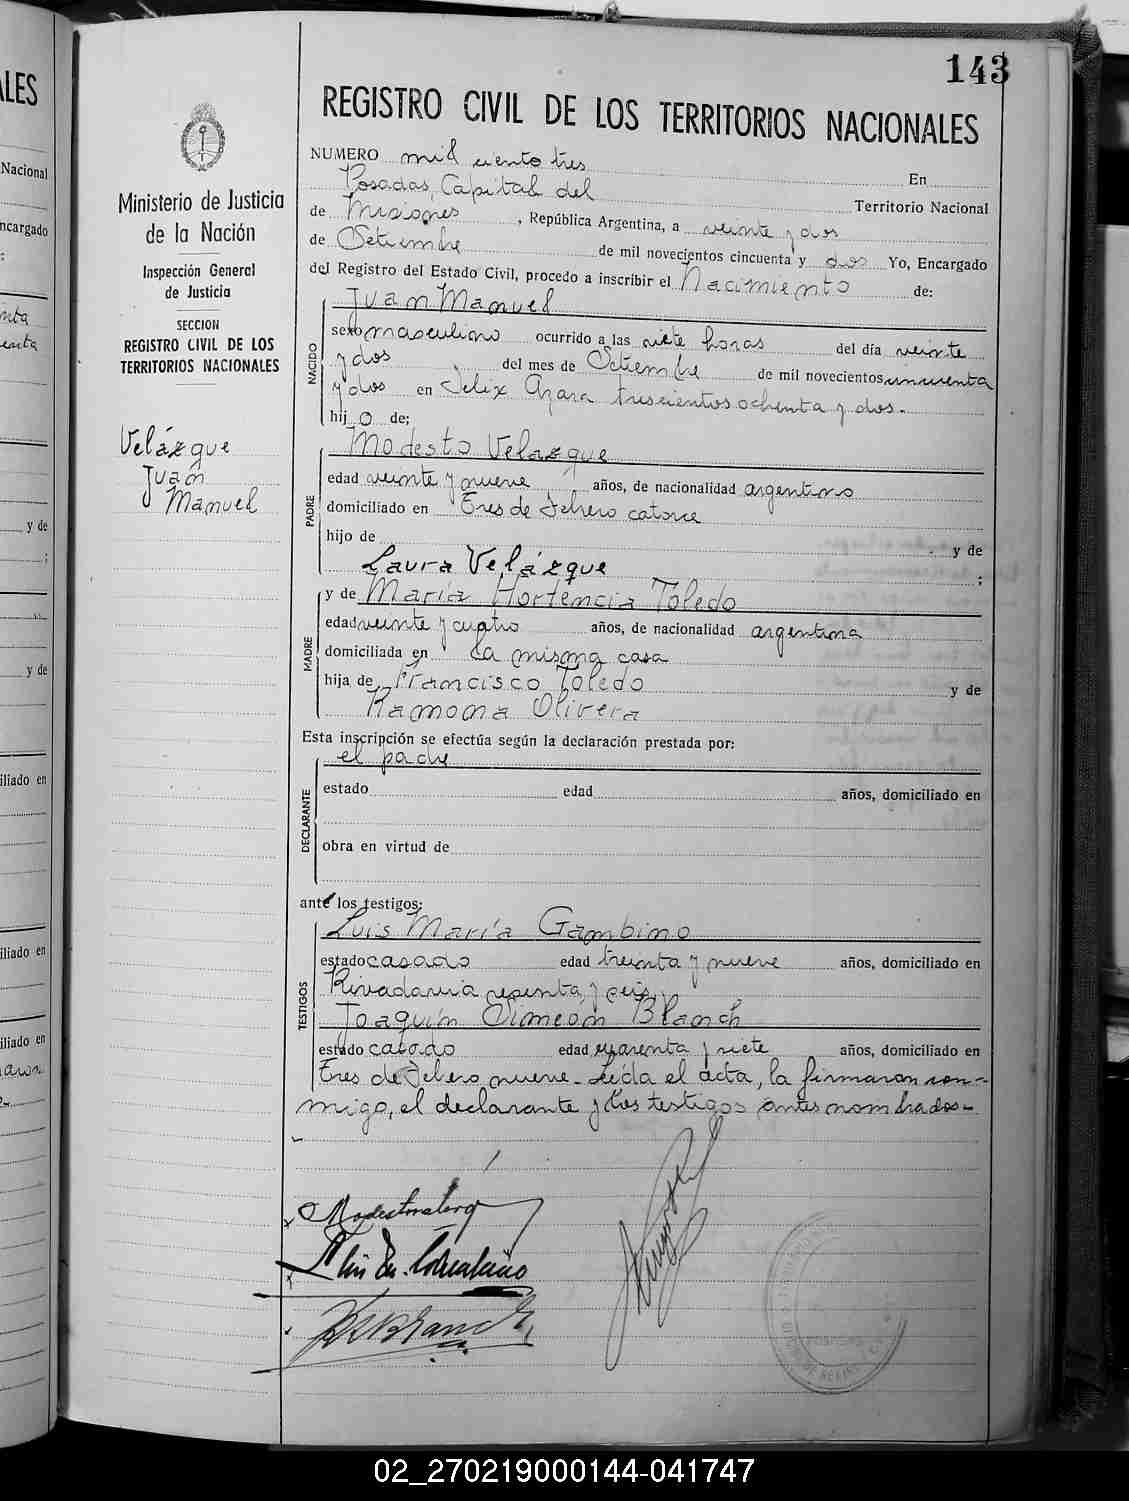 143
REGISTRO CIVIL DE LOS TERRITORIOS NACIONALES
Ministerio de Justicia
de la Nación
Inspección General
de Justicia
SECCION
REGISTRO CIVIL DE LOS
TERRITORIOS NACIONALES
Velázque
Juan
Manuel
NUMERO mil ciento tres En
Posadas, Capital del Territorio Nacional
de Misiones, República Argentina, a veinte y dos
de Setiembre de mil novecientos cincuenta y dos Yo, Encargado
del Registro del Estado Civil, procedo a inscribir el Nacimiento de:
NACIDO
Juan Manuel
sexo masculino ocurrido a las siete horas del día veinte
y dos del mes de Setiembre de mil novecientos cincuenta
y dos en Felix Azara trescientos ochenta y dos.-
hijo de;
PADRE
Modesto Velazque
edad veinte y nueve años, de nacionalidad argentino
domiciliado en Tres de Febrero catorce
hijo de y de
Laura Velázque ;
MADRE
y de María Hortencia Toledo
edad veinte y cuatro años, de nacionalidad argentina
domiciliada en la misma casa
hija de Francisco Toledo y de
Ramona Olivera
Esta inscripción se efectúa según la declaración prestada por:
DECLARANTE
el padre
estado edad años, domiciliado en
obra en virtud de
ante los testigos:
TESTIGOS
Luis María Gambino
estado casado edad treinta y nueve años, domiciliado en
Rivadavia sesenta y seis.
Joaquín Simeón Blanch
estado casado edad cuarenta y siete años, domiciliado en
Tres de Febrero nueve.- Leída el acta, la firmaron con-
migo, el declarante y los testigos antes nombrados.-
02_270219000144-041747